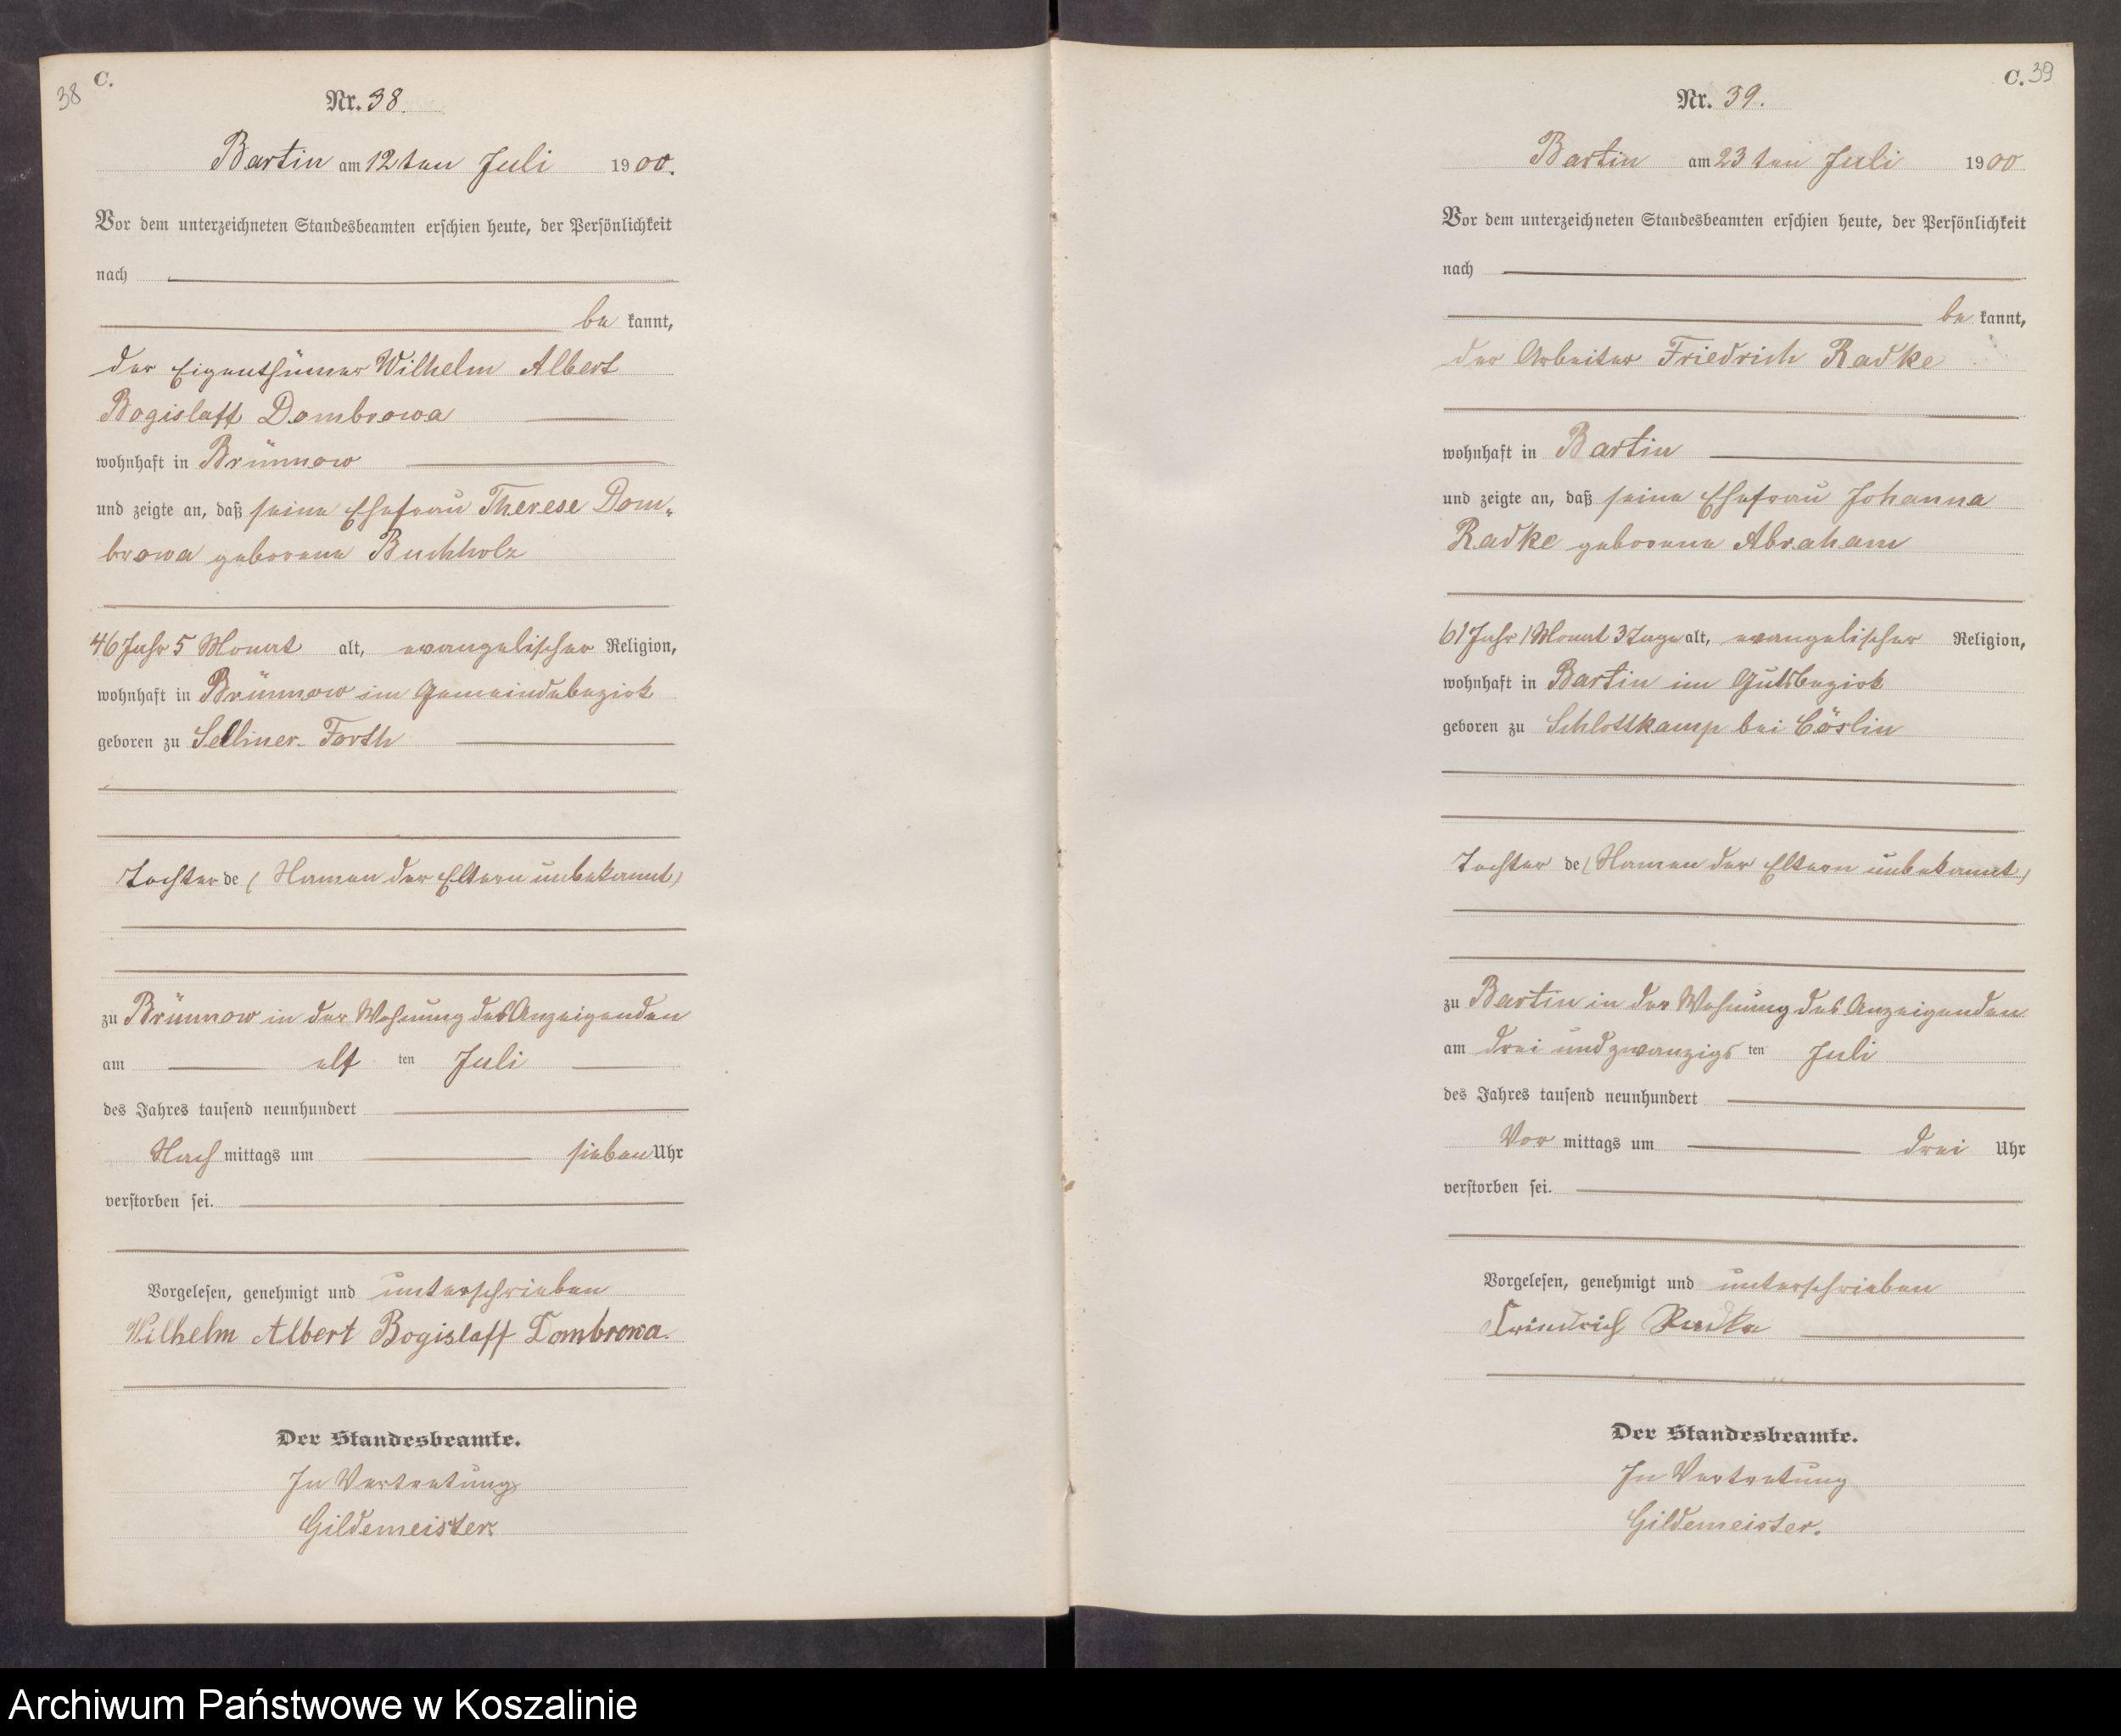 38 C.
Nr. 38.
Bartin am 12ten Juli 1900.
Vor dem unterzeichneten Standesbeamten erschien heute, der Persönlichkeit
nach
be kannt,
der Eigenthümer Wilhelm Albert
Bogislaff Dombrowa
wohnhaft in Brünnow
und zeigte an, daß seine Ehefrau Therese Dom-
browa geborene Buchholz
46 Jahr 5 Monat alt, evangelischer Religion,
wohnhaft in Brünnow im Gemeindebezirk
geboren zu Selliner-Forth
Tochter de (Namen der Eltern unbekannt)
zu Brünnow in der Wohnung des Anzeigenden
am elf ten Juli
des Jahres tausend neunhundert
Nach mittags um sieben Uhr
verstorben sei.
Vorgelesen, genehmigt und unterschrieben
Wilhelm Albert Bogislaff Dombrowa.
Der Standesbeamte.
In Vertretung
Gildemeister.
C. 39
Nr. 39.
Bartin am 23ten Juli 1900
Vor dem unterzeichneten Standesbeamten erschien heute, der Persönlichkeit
nach
be kannt,
der Arbeiter Friedrich Radke
wohnhaft in Bartin
und zeigte an, daß seine Ehefrau Johanna
Radke geborene Abraham
61 Jahr 1 Monat 3 Tage alt, evangelischer Religion,
wohnhaft in Bartin im Gutsbezirk
geboren zu Schlosskamp bei Cöslin
Tochter de (Namen der Eltern unbekannt)
zu Bartin in der Wohnung des Anzeigenden
am drei und zwanzigs ten Juli
des Jahres tausend neunhundert
Vor mittags um drei Uhr
verstorben sei.
Vorgelesen, genehmigt und unterschrieben
Friedrich Radke
Der Standesbeamte.
In Vertretung
Gildemeister.
Archiwum Państwowe w Koszalinie